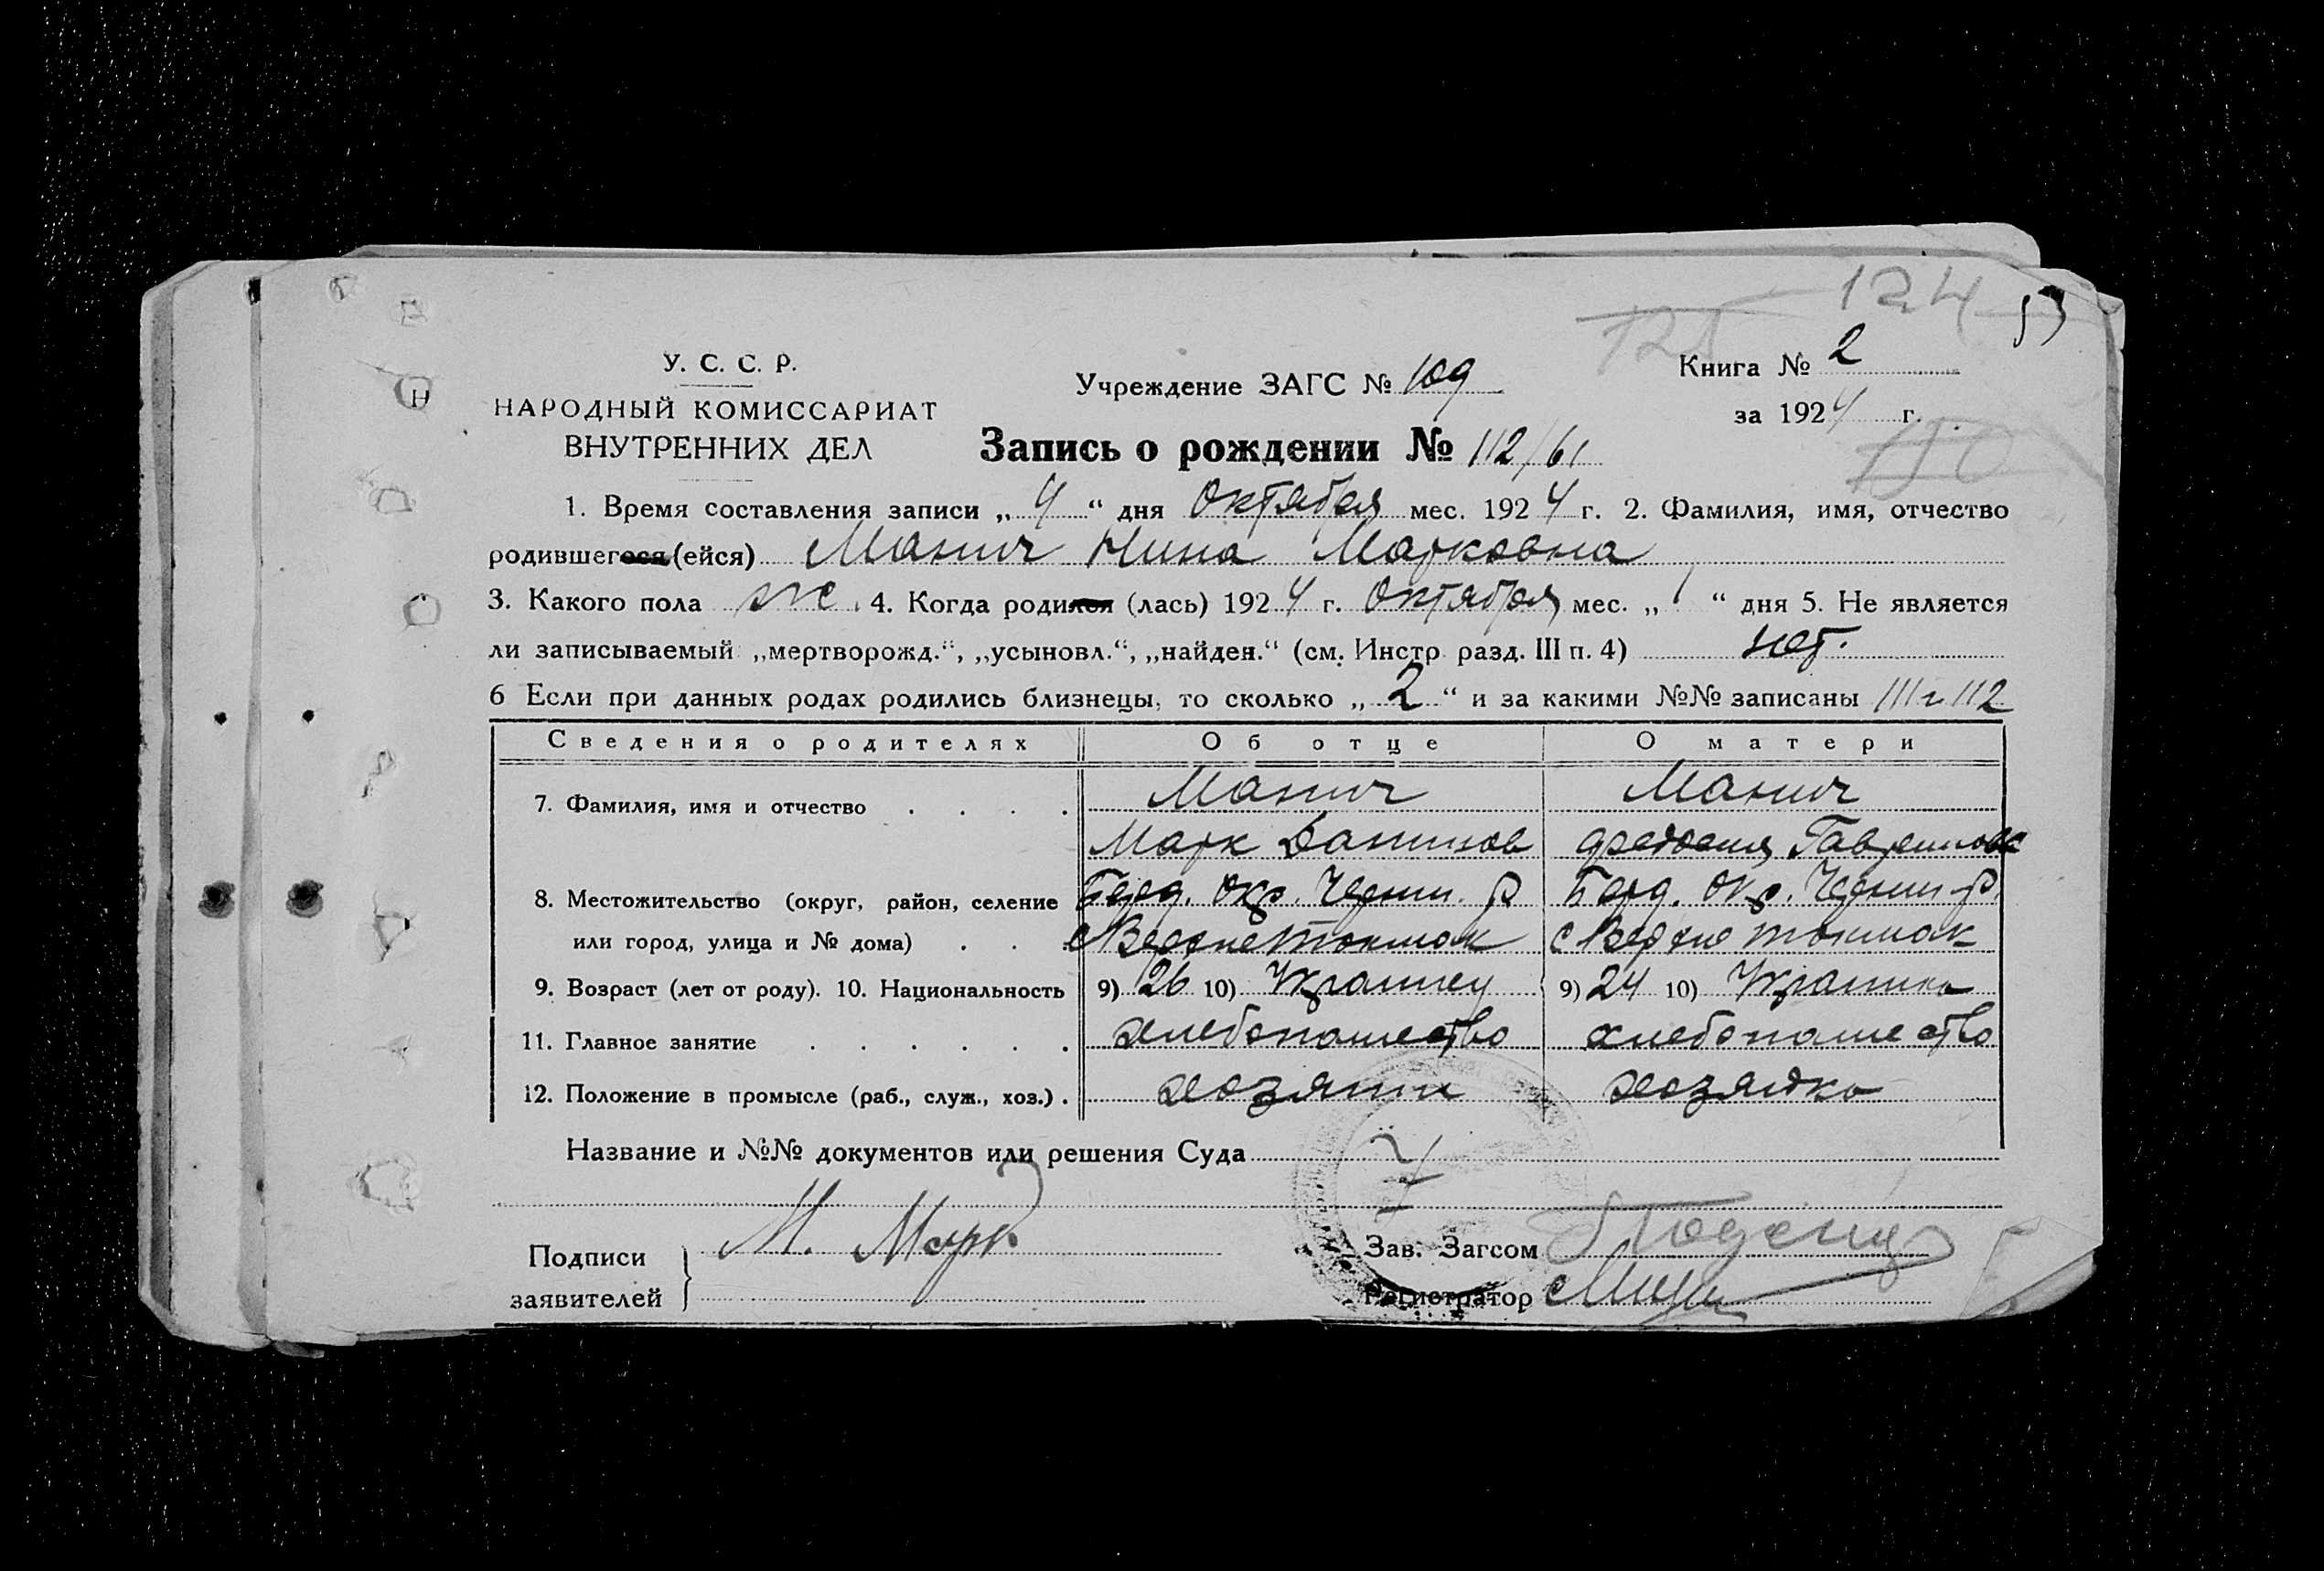 124
53
125
У. С. С. Р.
НАРОДНЫЙ КОМИССАРИАТ
ВНУТРЕННИХ ДЕЛ
Учреждение ЗАГС № 109
Книга № 2
за 1924 г.
150
Запись о рождении № 112/61
1. Время составления записи „ 4 “ дня Октября мес. 1924 г. 2. Фамилия, имя, отчество
родившегося (ейся) Манич Нина Марковна
3. Какого пола ж. 4. Когда родился (лась) 1924 г. Октября мес. „ 1 “ дня 5. Не является
ли записываемый „мертворожд.“, „усыновл.“, „найден.“ (см. Инстр разд. III п. 4) нет.
6 Если при данных родах родились близнецы, то сколько „ 2 “ и за какими №№ записаны 111 и 112
Сведения о родителях Об отце О матери
7. Фамилия, имя и отчество Манич Манич
Марк Данилов
8. Местожительство (округ, район, селение Берд. Окр. Черни. Р Берд. Окр. Черни. Р.
или город, улица и № дома) с Верхнетокмак с Верхне токмак
9. Возраст (лет от роду). 10. Национальность 9) 26 10) Украинец 9) 24 10) Украинка
11. Главное занятие хлебопашество хлебопашество
12. Положение в промысле (раб., служ., хоз.) хозяин хозяйка
Название и №№ документов или решения Суда
Подписи
заявителей
М. Марк
Зав. Загсом
Регистратор